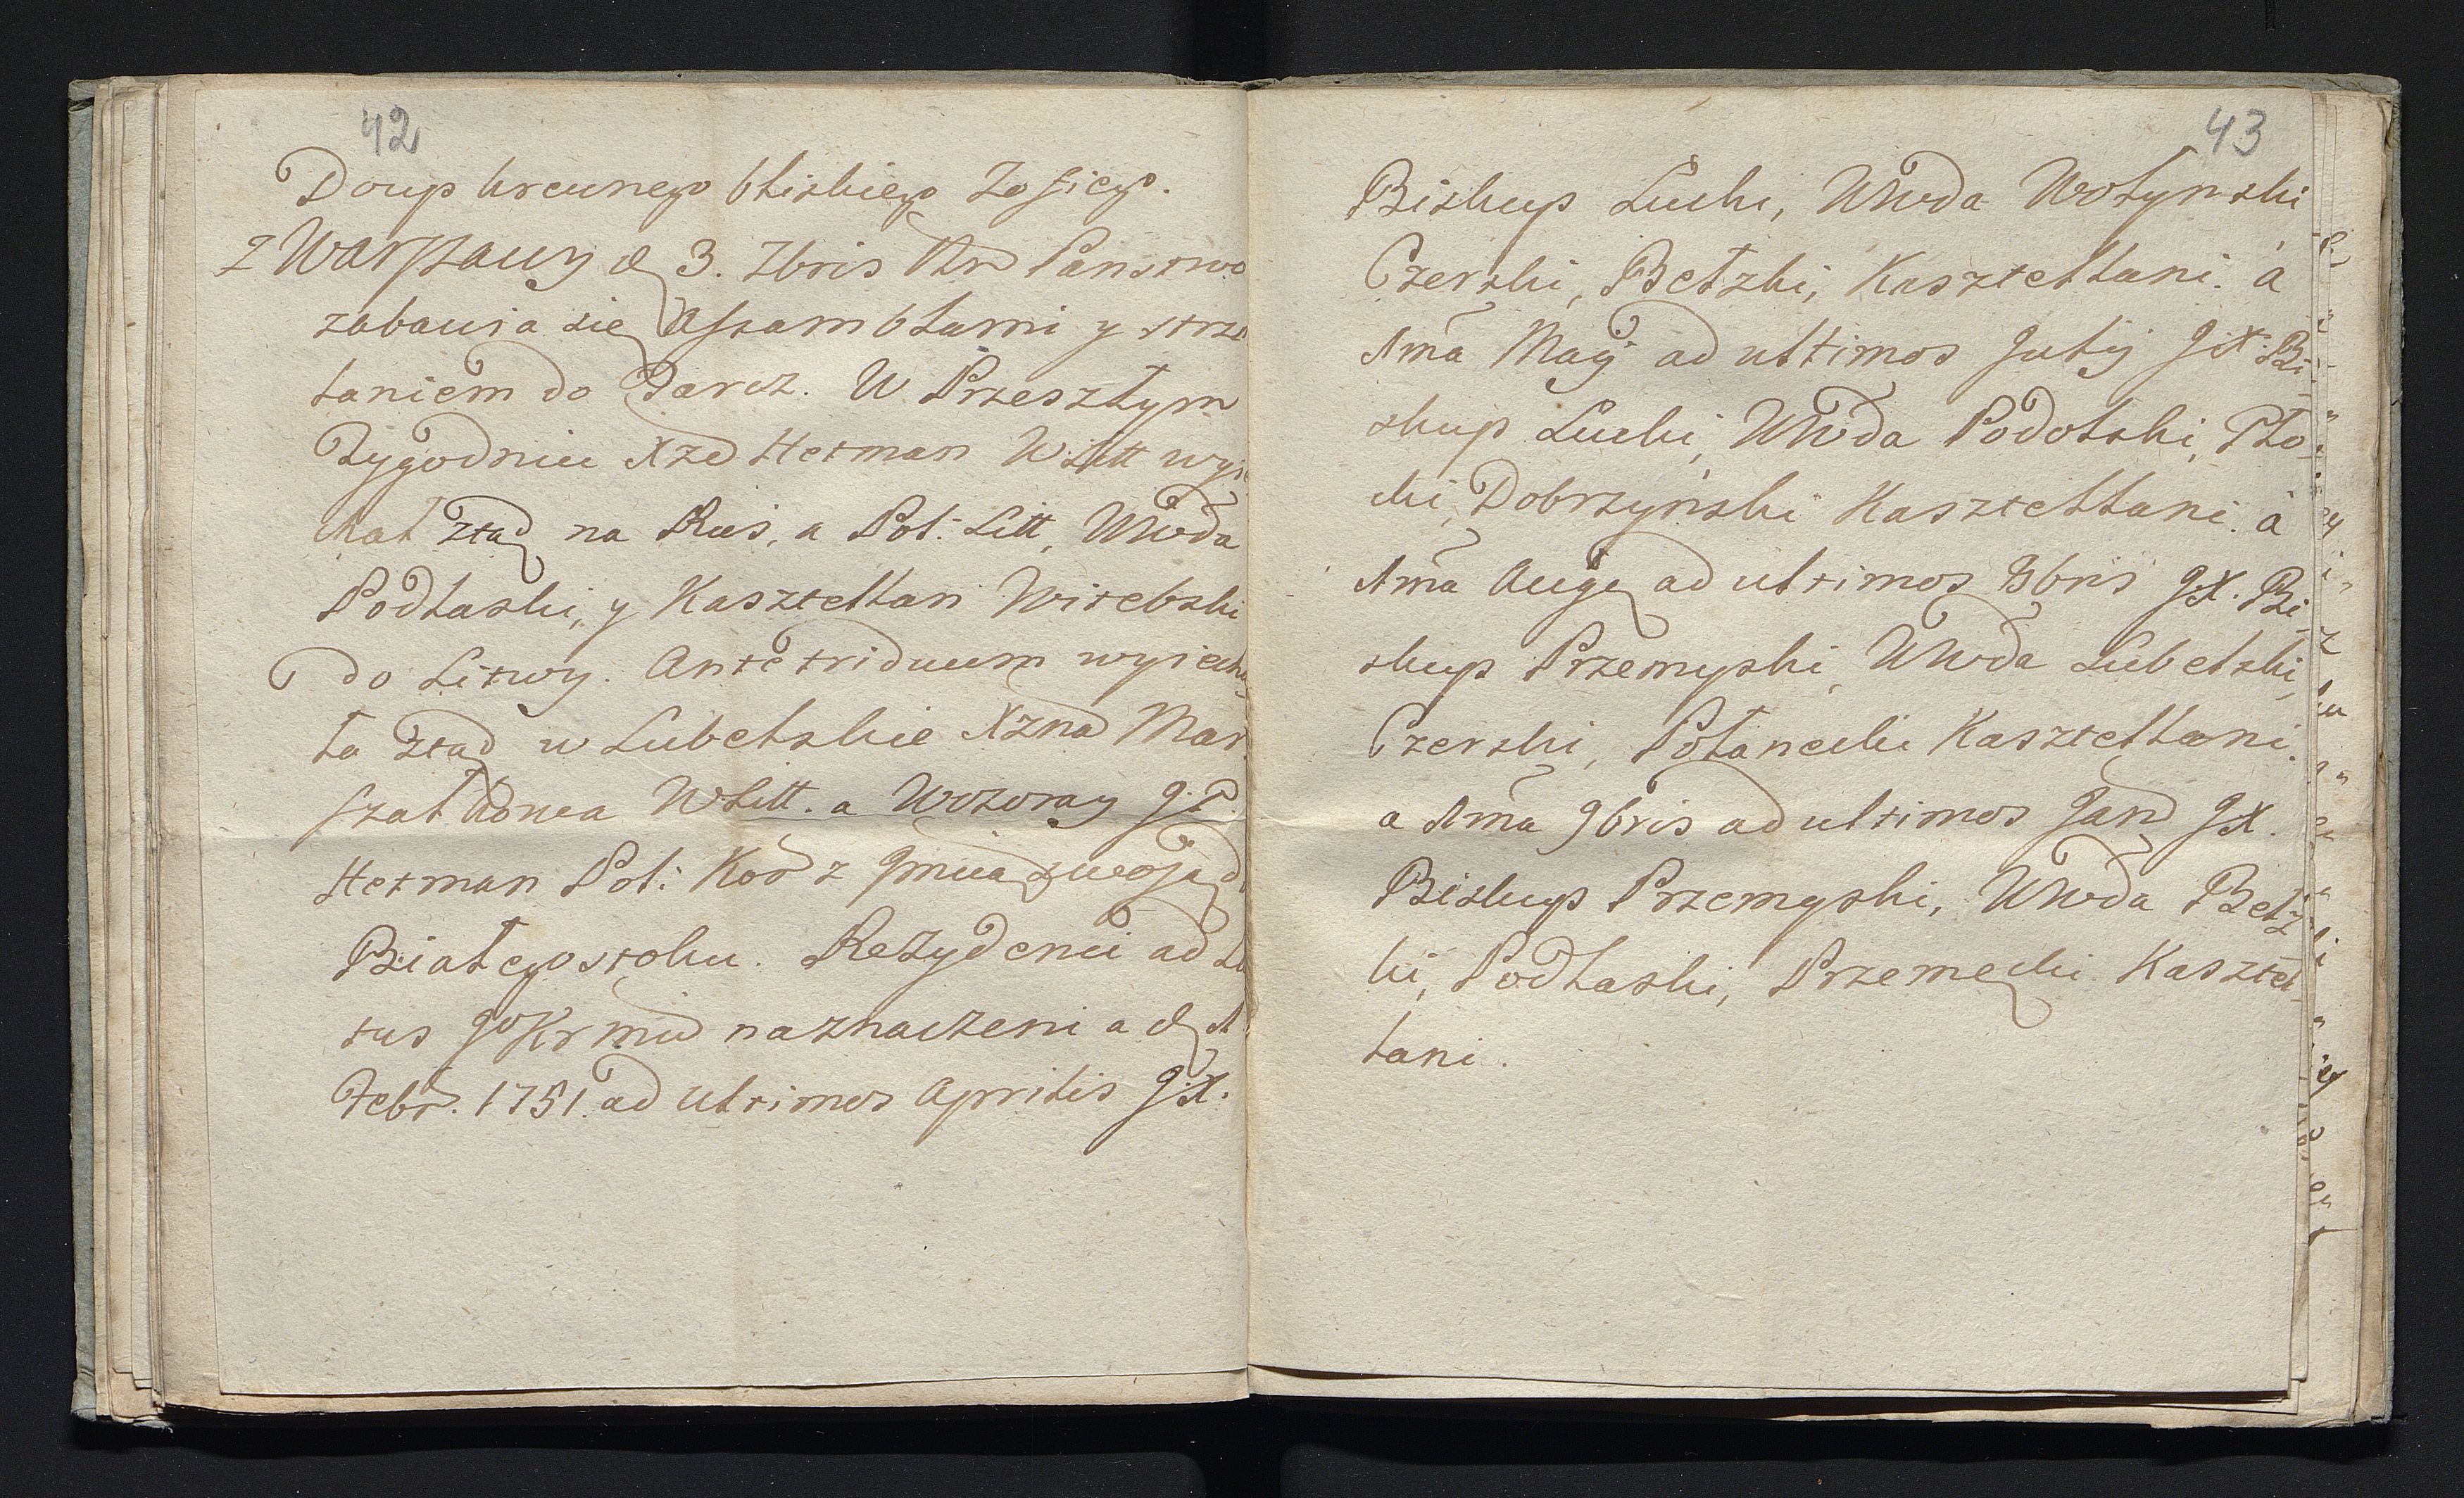 42
Doup krewnego bliskiego Jo
Z Warszawy d 3. 7bris Kr Panstwo
zabawia się Assamblami y strze
laniem do Tarcz. W Przeszłym
Tygodniu Xże Hetman WLitt wyie
chał ztąd na Ruś, a Pol: Litt, WWda
Podlaski, y Kasztellan Witebski
do Litwy. Ante triduum wyiecha
ła ztąd w Lubelskie Xzna Mar
szałkowa WLitt. a Wczoray JP.
Hetman Pol: Kor z Jmcią swoją d
Białegostoku. Rezydenci ad La
tus JoKrmci naznaczeni a d 1
Febr. 1751. ad ultimos Aprilis JX.
43
Biskup Łucki, WWda Wołynski
Czerski, Bełzki, Kasztellani. à
1ma Maÿ ad ultimos Julij JX. Bi-
skup Łucki, WWda Podolski, Pło-
cki, Dobrzyński Kasztellani. à
1ma Augi ad ultimos 8bris JX. Bi-
skup Przemyski, WWda Lubelski,
Czerski, Połaniecki Kasztellani.
a 1ma 9bris ad ultimos Jan JX.
Biskup Przemyski, WWda Bełz
ki, Podlaski, Przemęcki Kasztel-
lani.